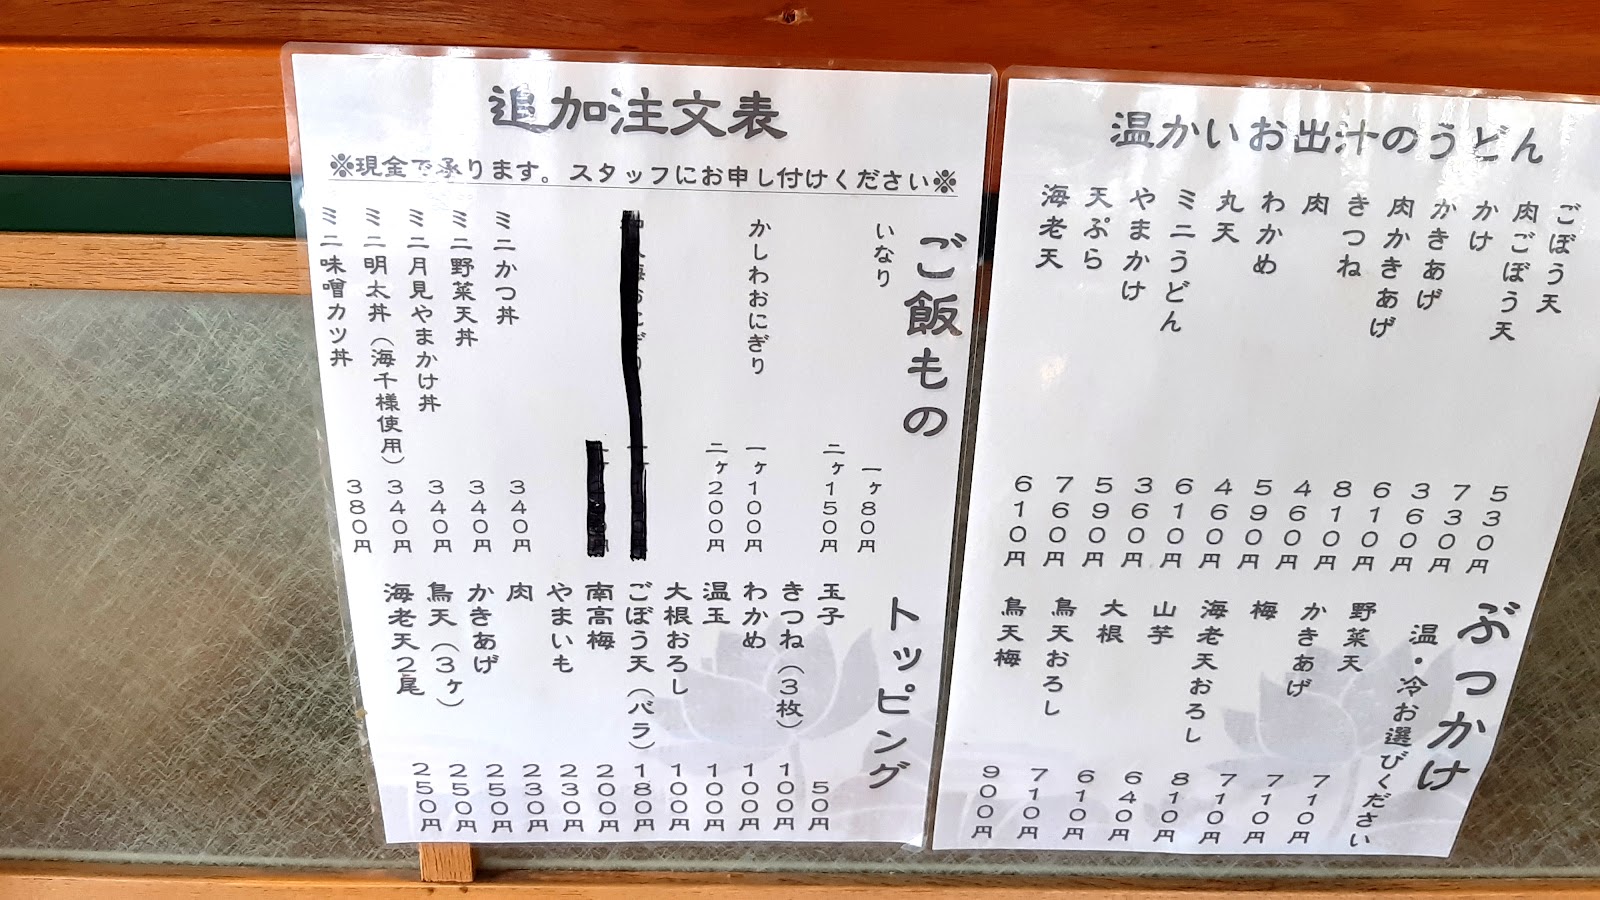 追加注文表
※現金で承ります。スタッフにお申し付けください※
ご飯もの
いなり 一ヶ80円
二ヶ150円
かしわおにぎり 一ヶ100円
二ヶ200円
ミニかつ丼 340円
ミニ野菜天丼 340円
ミニ月見やまかけ丼 340円
ミニ明太丼（海千様使用） 340円
ミニ味噌カツ丼 380円
トッピング
玉子 50円
きつね（3枚） 100円
わかめ 100円
温玉 100円
大根おろし 100円
ごぼう天（バラ） 180円
南高梅 200円
やまいも 230円
肉 230円
かきあげ 250円
鳥天（3ヶ） 250円
海老天2尾 250円
温かいお出汁のうどん
ごぼう天 530円
肉ごぼう天 730円
かけ 360円
かきあげ 610円
肉かきあげ 810円
きつね 460円
肉 590円
わかめ 460円
丸天 610円
ミニうどん 360円
やまかけ 590円
天ぷら 760円
海老天 610円
ぶっかけ
温・冷お選びください
野菜天 710円
かきあげ 710円
梅 710円
海老天おろし 810円
山芋 640円
大根 610円
鳥天おろし 710円
鳥天梅 900円